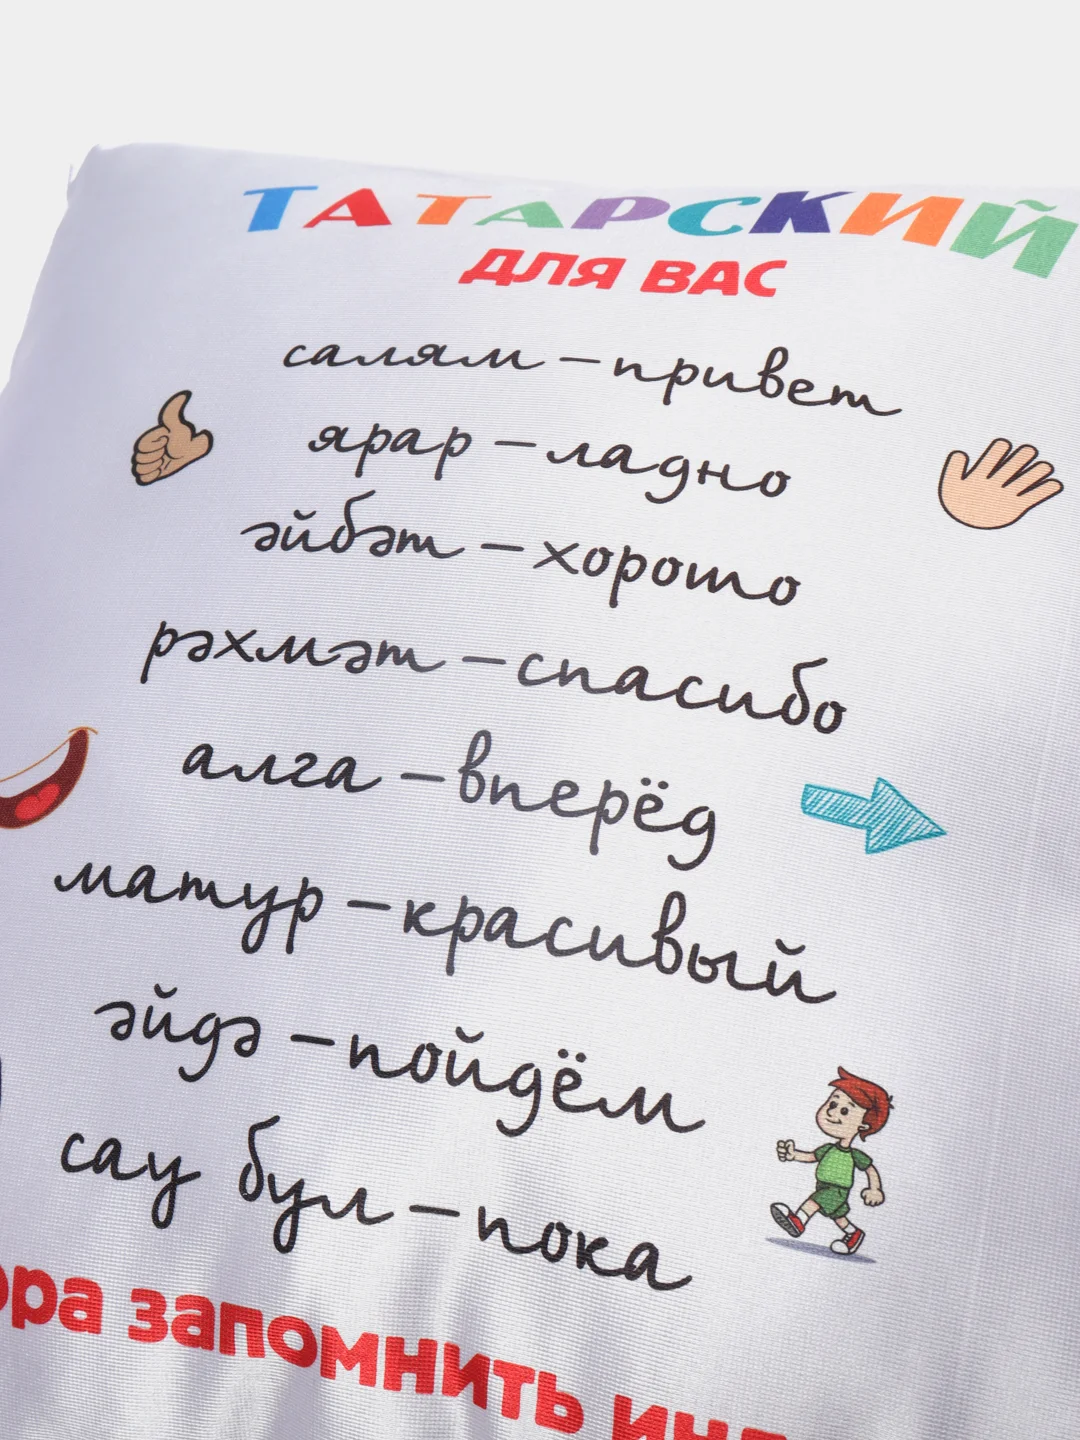 ТАТАРСКИЙ
ДЛЯ ВАС
салям – привет
ярар – ладно
әйбәт – хорошо
рәхмәт – спасибо
алга – вперёд
матур – красивый
әйдә – пойдём
сау бул – пока
запомнить